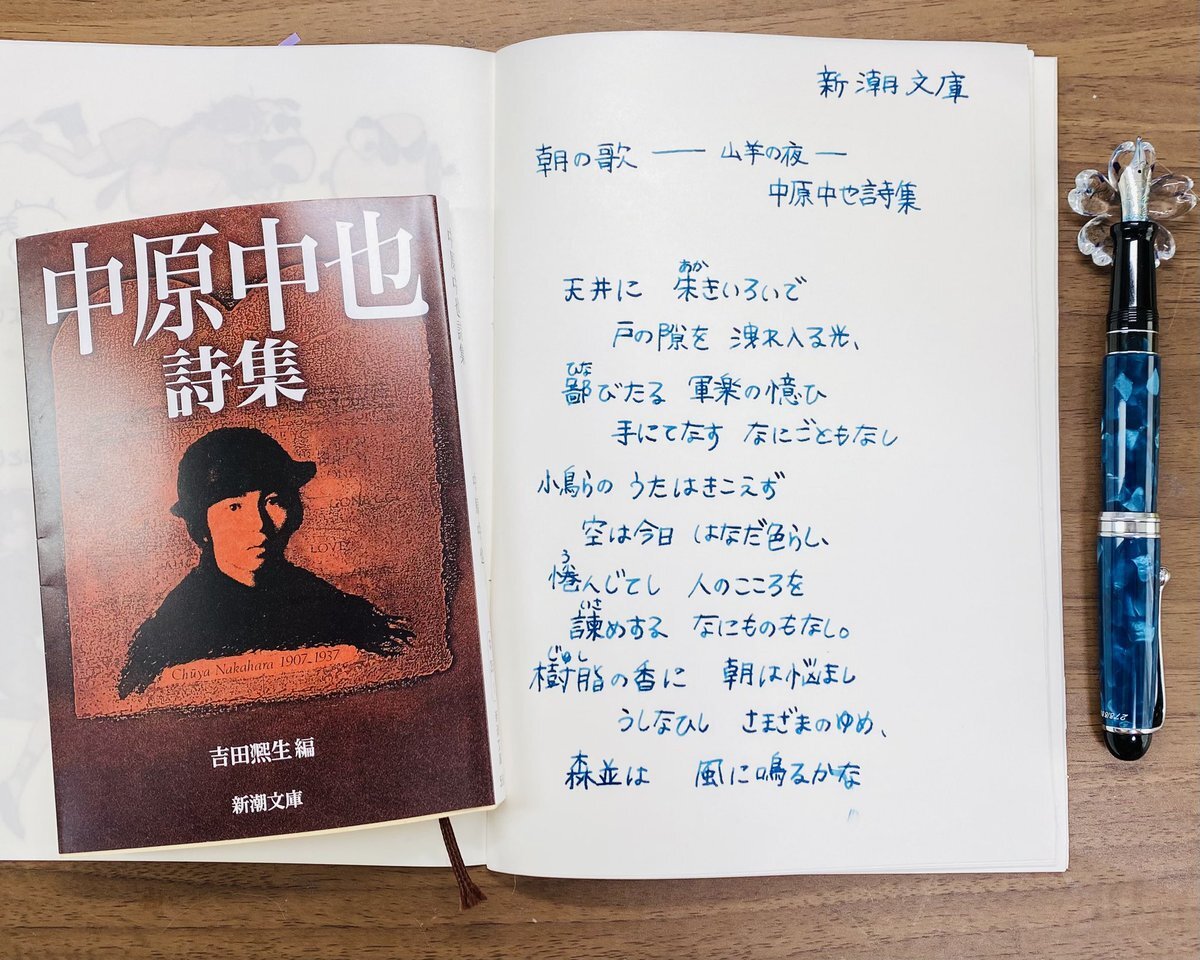 中原中也
詩集
Chūya Nakahara 1907-1937
吉田凞生編
新潮文庫
新潮文庫
朝の歌 ── 山羊の夜 ─
中原中也詩集
あか
天井に 朱きいろいで
戸の隙を 洩れ入る光、
ひな
鄙びたる 軍楽の憶ひ
手にてなす なにごともなし
小鳥らの うたはきこえず
空は今日 はなだ色らし、
う
惓んじてし 人のこころを
いさ
諫めする なにものもなし。
じゅし
樹脂の香に 朝は悩まし
うしなひし さまざまのゆめ、
森並は 風に鳴るかな